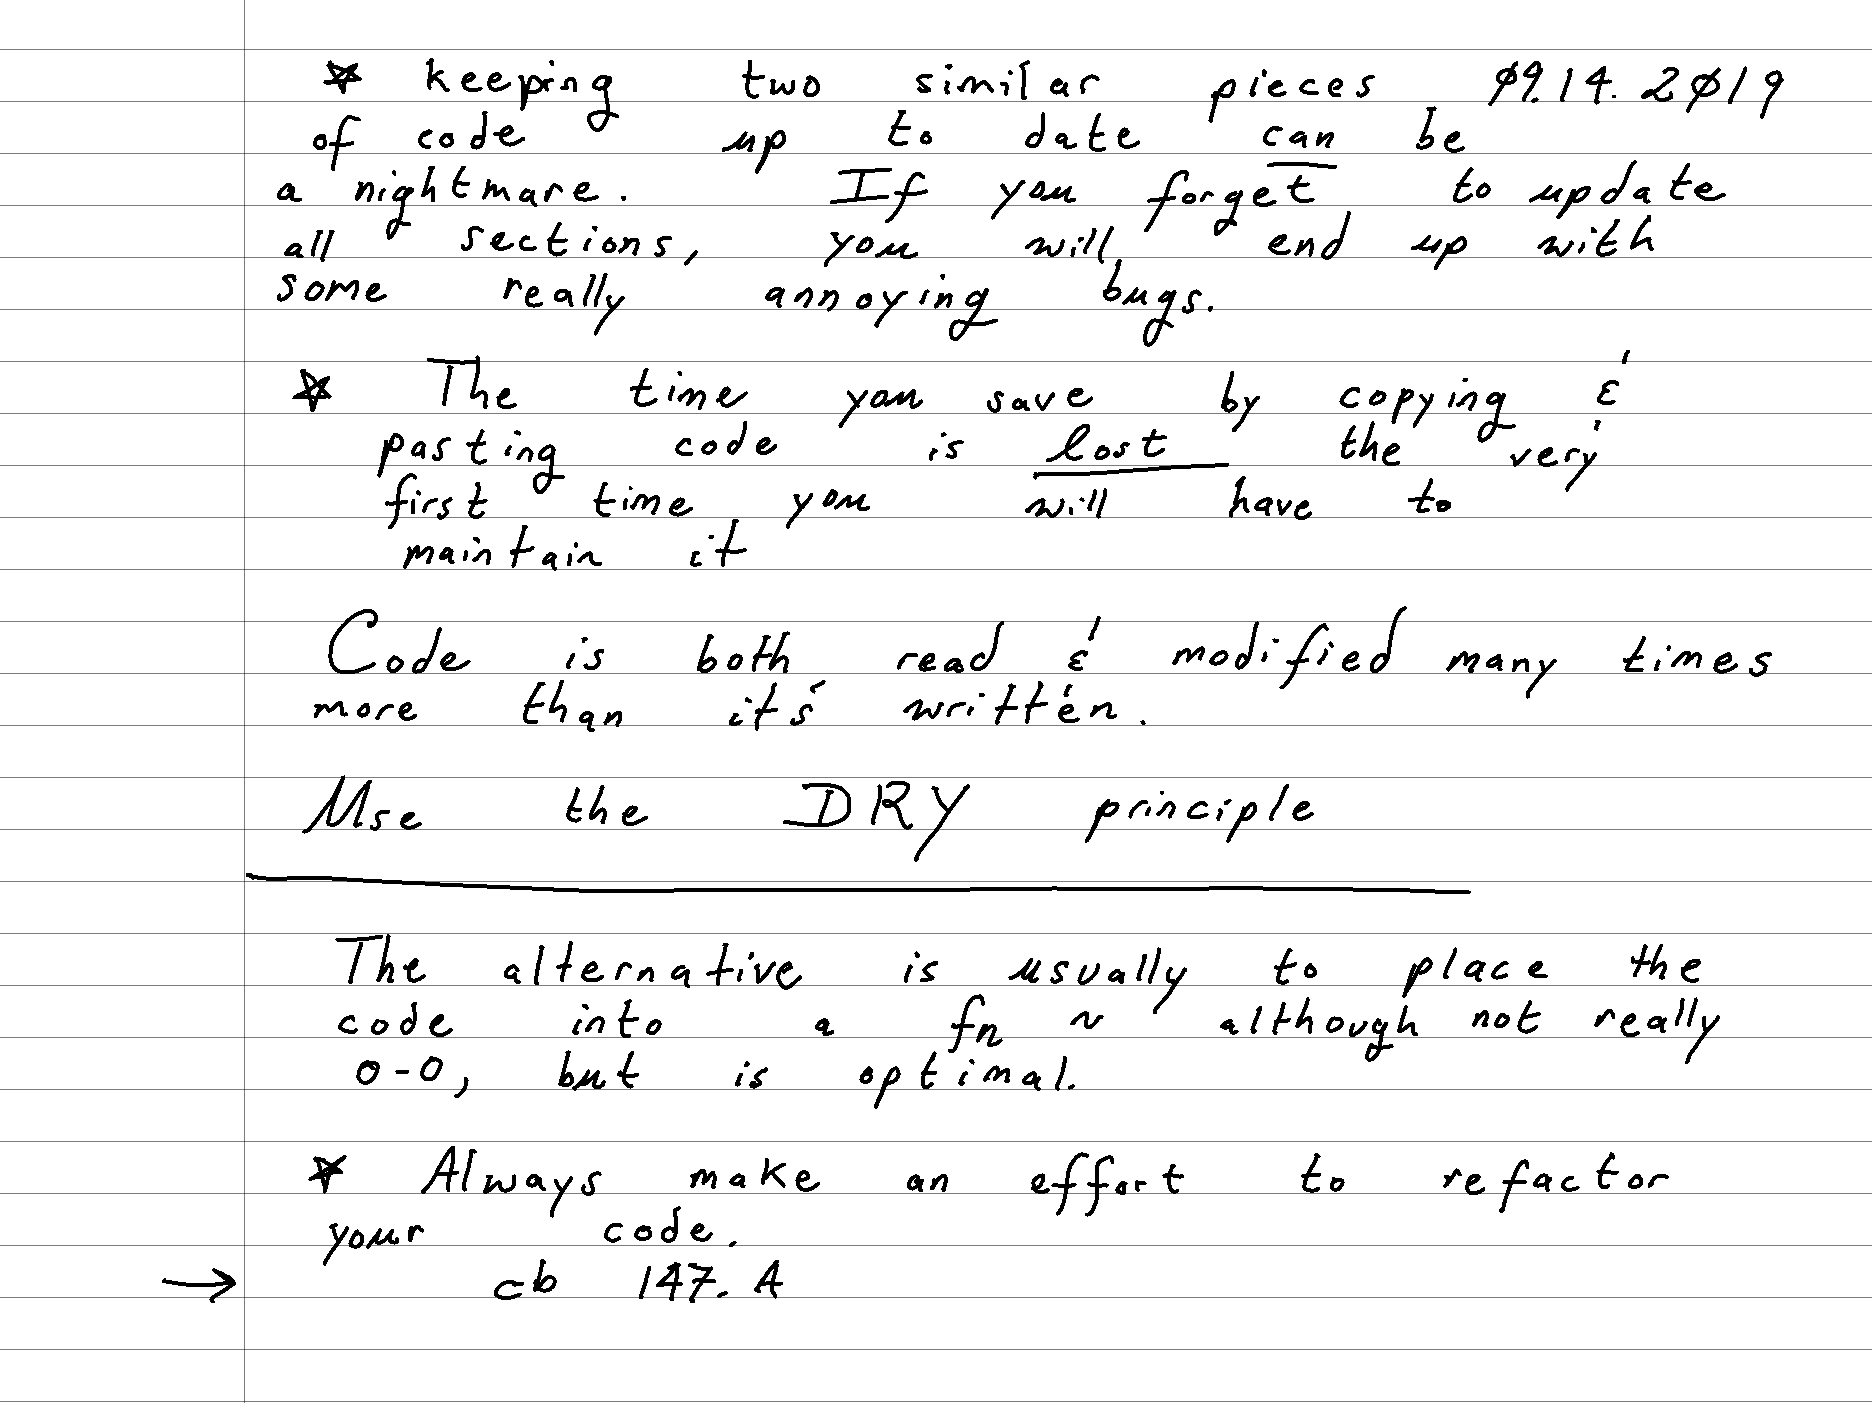 ☆ keeping two similar pieces 09.14.2019
of code up to date can be
a nightmare. If you forget to update
all sections, you will end up with
some really annoying bugs.
☆ The time you save by copying &
pasting code is lost the very
first time you will have to
maintain it
Code is both read & modified many times
more than it's written.
Use the DRY principle
The alternative is usually to place the
code into a fn ~ although not really
O-O, but is optimal.
☆ Always make an effort to refactor
your code.
→ cb 147. A